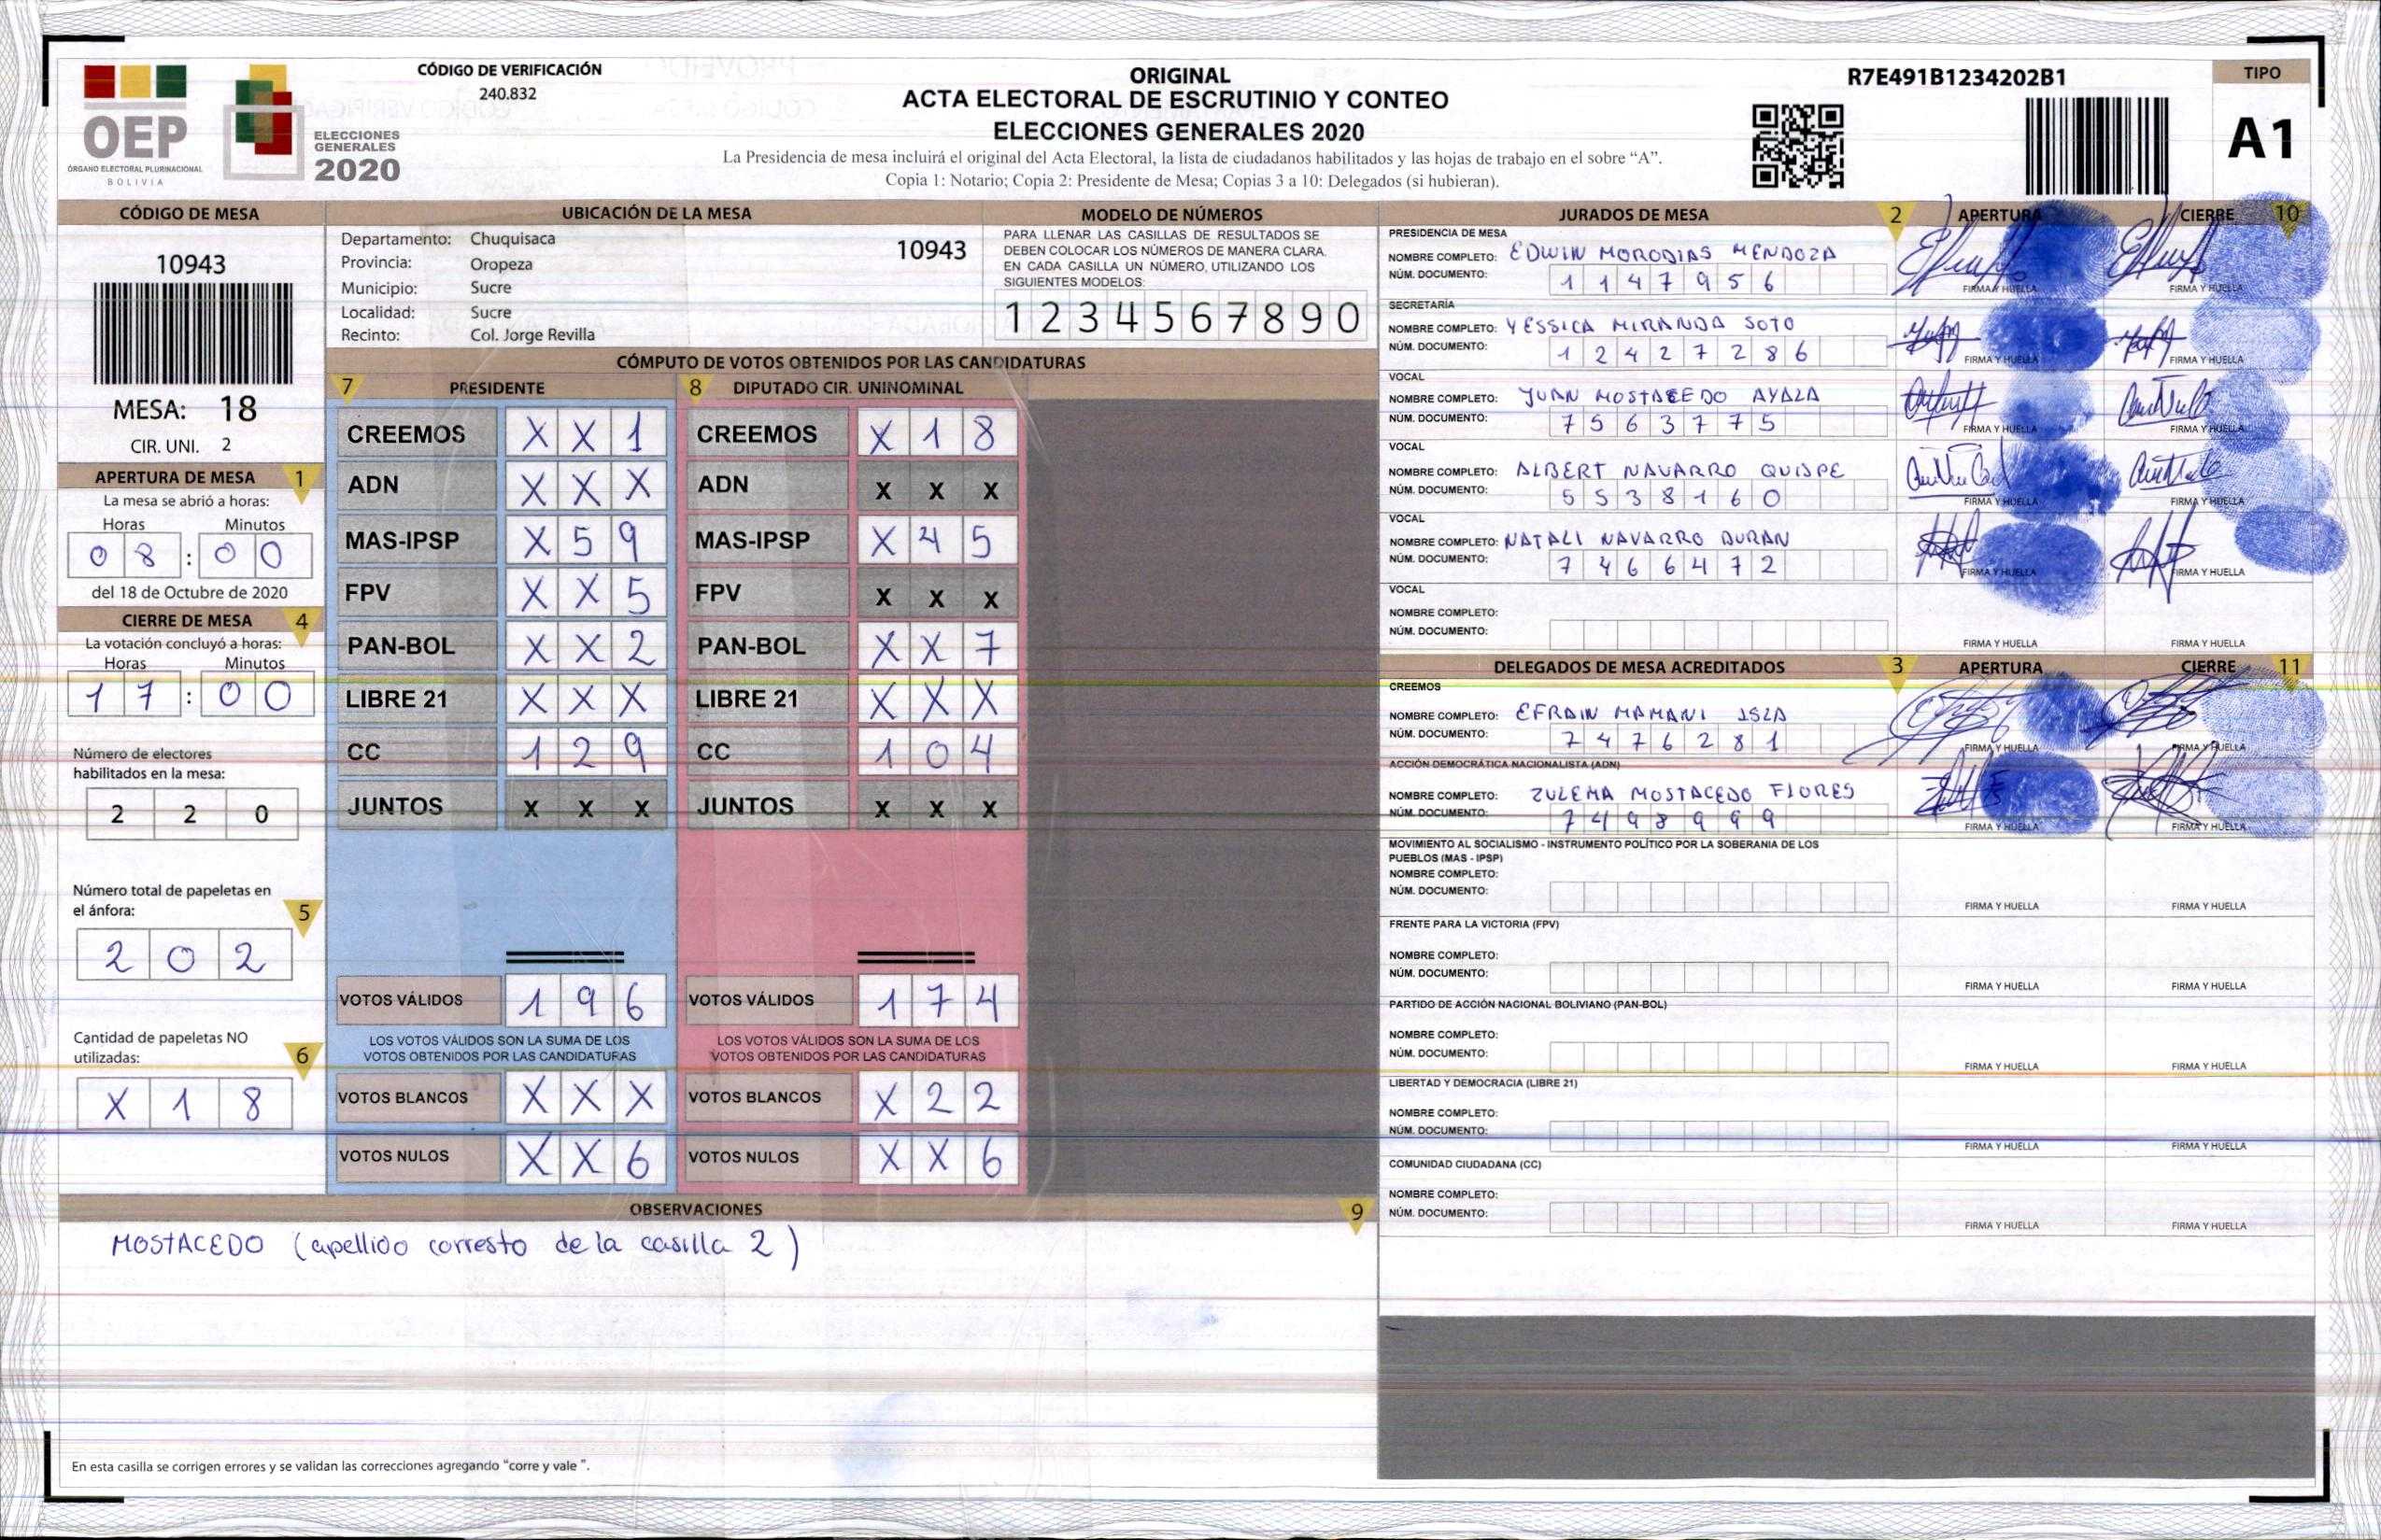 OEP
ÓRGANO ELECTORAL PLURINACIONAL
BOLIVIA
ELECCIONES
GENERALES
2020
CÓDIGO DE VERIFICACIÓN
240.832
ORIGINAL
ACTA ELECTORAL DE ESCRUTINIO Y CONTEO
ELECCIONES GENERALES 2020
La Presidencia de mesa incluirá el original del Acta Electoral, la lista de ciudadanos habilitados y las hojas de trabajo en el sobre “A”.
Copia 1: Notario; Copia 2: Presidente de Mesa; Copias 3 a 10: Delegados (si hubieran).
R7E491B1234202B1
TIPO
A1
CÓDIGO DE MESA
10943
MESA: 18
CIR. UNI. 2
APERTURA DE MESA 1
La mesa se abrió a horas:
Horas Minutos
0 8 : 0 0
del 18 de Octubre de 2020
CIERRE DE MESA 4
La votación concluyó a horas:
Horas Minutos
1 7 : 0 0
Número de electores
habilitados en la mesa:
2 2 0
Número total de papeletas en
el ánfora: 5
2 0 2
Cantidad de papeletas NO
utilizadas: 6
X 1 8
UBICACIÓN DE LA MESA
Departamento: Chuquisaca 10943
Provincia: Oropeza
Municipio: Sucre
Localidad: Sucre
Recinto: Col. Jorge Revilla
MODELO DE NÚMEROS
PARA LLENAR LAS CASILLAS DE RESULTADOS SE
DEBEN COLOCAR LOS NÚMEROS DE MANERA CLARA.
EN CADA CASILLA UN NÚMERO, UTILIZANDO LOS
SIGUIENTES MODELOS:
1 2 3 4 5 6 7 8 9 0
CÓMPUTO DE VOTOS OBTENIDOS POR LAS CANDIDATURAS
7 PRESIDENTE 8 DIPUTADO CIR. UNINOMINAL
CREEMOS X X 1 CREEMOS X 1 8
ADN X X X ADN X X X
MAS-IPSP X 5 9 MAS-IPSP X 4 5
FPV X X 5 FPV X X X
PAN-BOL X X 2 PAN-BOL X X 7
LIBRE 21 X X X LIBRE 21 X X X
CC 1 2 9 CC 1 0 4
JUNTOS X X X JUNTOS X X X
VOTOS VÁLIDOS 1 9 6 VOTOS VÁLIDOS 1 7 4
LOS VOTOS VÁLIDOS SON LA SUMA DE LOS LOS VOTOS VÁLIDOS SON LA SUMA DE LOS
VOTOS OBTENIDOS POR LAS CANDIDATURAS VOTOS OBTENIDOS POR LAS CANDIDATURAS
VOTOS BLANCOS X X X VOTOS BLANCOS X 2 2
VOTOS NULOS X X 6 VOTOS NULOS X X 6
OBSERVACIONES 9
MOSTACEDO (apellido corresto de la casilla 2)
En esta casilla se corrigen errores y se validan las correcciones agregando “corre y vale ”.
JURADOS DE MESA 2 APERTURA CIERRE 10
PRESIDENCIA DE MESA
NOMBRE COMPLETO: EDWIN MORODIAS MENDOZA
NÚM. DOCUMENTO: 1 1 4 7 9 5 6
FIRMA Y HUELLA FIRMA Y HUELLA
SECRETARÍA
NOMBRE COMPLETO: YESSICA MIRANDA SOTO
NÚM. DOCUMENTO: 1 2 4 2 7 2 8 6
FIRMA Y HUELLA FIRMA Y HUELLA
VOCAL
NOMBRE COMPLETO: JUAN MOSTACEDO AYALA
NÚM. DOCUMENTO: 7 5 6 3 7 7 5
FIRMA Y HUELLA FIRMA Y HUELLA
VOCAL
NOMBRE COMPLETO: ALBERT NAVARRO QUISPE
NÚM. DOCUMENTO: 5 5 3 8 1 6 0
FIRMA Y HUELLA FIRMA Y HUELLA
VOCAL
NOMBRE COMPLETO: NATALI NAVARRO DURAN
NÚM. DOCUMENTO: 7 4 6 6 4 7 2
FIRMA Y HUELLA FIRMA Y HUELLA
VOCAL
NOMBRE COMPLETO:
NÚM. DOCUMENTO:
FIRMA Y HUELLA FIRMA Y HUELLA
DELEGADOS DE MESA ACREDITADOS 3 APERTURA CIERRE 11
CREEMOS
NOMBRE COMPLETO: EFRAIN MAMANI ISLA
NÚM. DOCUMENTO: 7 4 7 6 2 8 1
FIRMA Y HUELLA FIRMA Y HUELLA
ACCIÓN DEMOCRÁTICA NACIONALISTA (ADN)
NOMBRE COMPLETO: ZULEMA MOSTACEDO FLORES
NÚM. DOCUMENTO: 7 4 9 8 9 9 9
FIRMA Y HUELLA FIRMA Y HUELLA
MOVIMIENTO AL SOCIALISMO - INSTRUMENTO POLÍTICO POR LA SOBERANIA DE LOS
PUEBLOS (MAS - IPSP)
NOMBRE COMPLETO:
NÚM. DOCUMENTO:
FIRMA Y HUELLA FIRMA Y HUELLA
FRENTE PARA LA VICTORIA (FPV)
NOMBRE COMPLETO:
NÚM. DOCUMENTO:
FIRMA Y HUELLA FIRMA Y HUELLA
PARTIDO DE ACCIÓN NACIONAL BOLIVIANO (PAN-BOL)
NOMBRE COMPLETO:
NÚM. DOCUMENTO:
FIRMA Y HUELLA FIRMA Y HUELLA
LIBERTAD Y DEMOCRACIA (LIBRE 21)
NOMBRE COMPLETO:
NÚM. DOCUMENTO:
FIRMA Y HUELLA FIRMA Y HUELLA
COMUNIDAD CIUDADANA (CC)
NOMBRE COMPLETO:
NÚM. DOCUMENTO:
FIRMA Y HUELLA FIRMA Y HUELLA